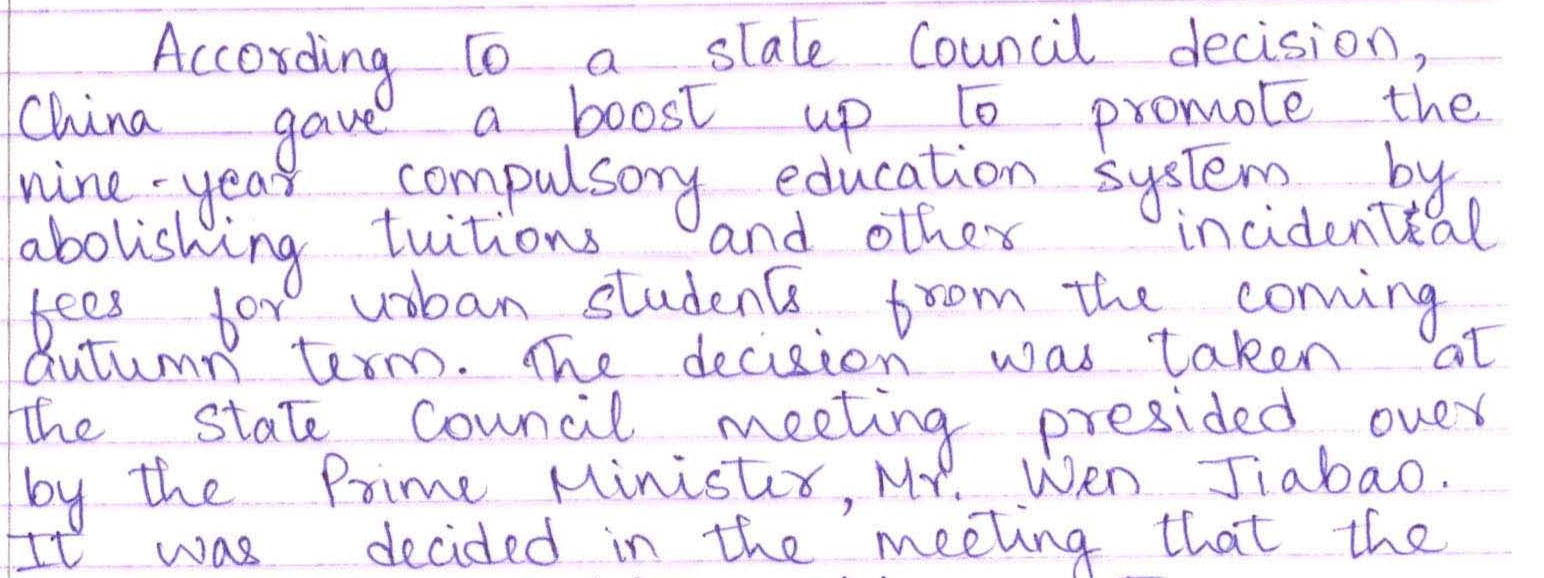 According to a state Council decision,
China gave a boost up to promote the
nine-year compulsory education system by
abolishing tuitions and other incidental
fees for urban students from the coming
autumn term. The decision was taken at
the State Council meeting presided over
by the Prime Minister, Mr. Wen Jiabao.
It was decided in the meeting that the